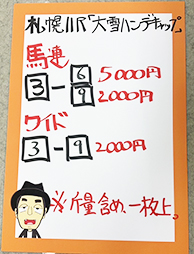 札幌11R「大雪ハンデキャップ」
馬連
3-6 5000円
9 2000円
ワイド
3-9 2000円
※斤量含め、一枚上。